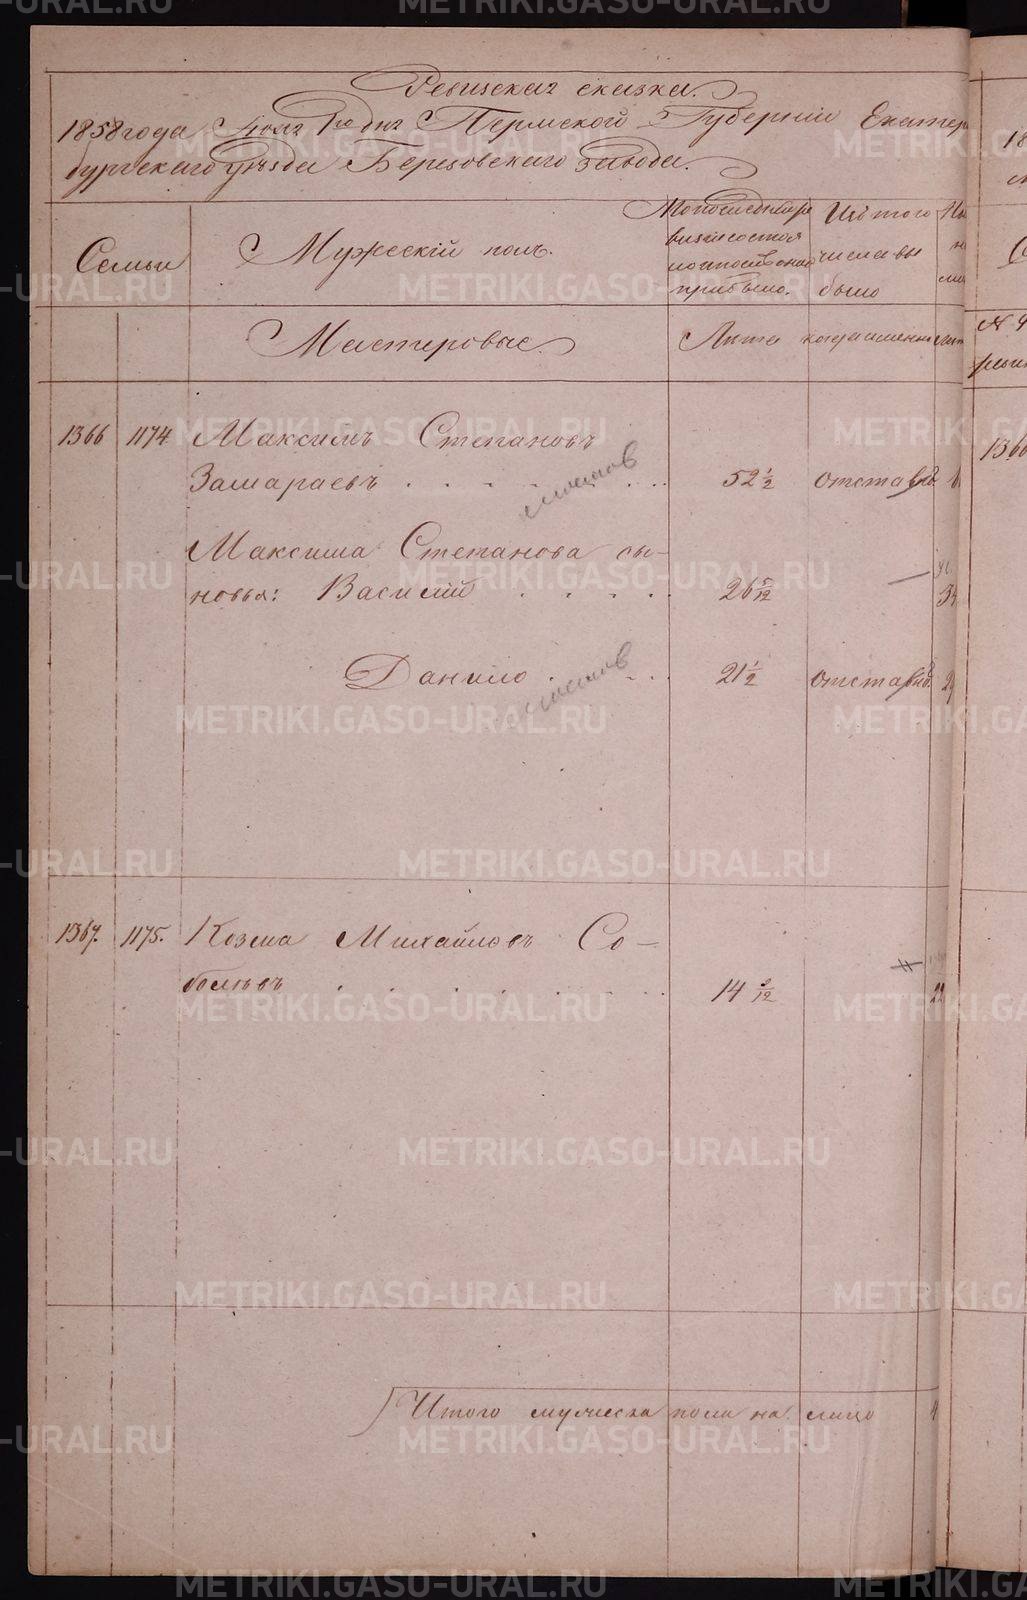 Ревизская сказка.
1858 года Іюля 1го дня Пермской Губерніи Екатер
бургскаго уѣзда Березовскаго завода.
Семьи
Мужескій полъ.
По последней ре
визіи состоя
ло и после оной
прибыло.
Изъ того
числа вы
было
Мастеровые.
Лета
когда именно
1366 1174 Максимъ Степановъ
Замараевъ . . . . . . . 52 1/2 отставной
Максима Степанова сы-
новья: Василій . . . . . 26 5/12 —
Данило . . . . 21 1/2 отставной
1367. 1175. Козма Михайловъ Со-
болевъ . . . . . . . 14 9/12
Итого мужеска пола на лицо 4
1366
METRIKI.GASO-URAL.RU